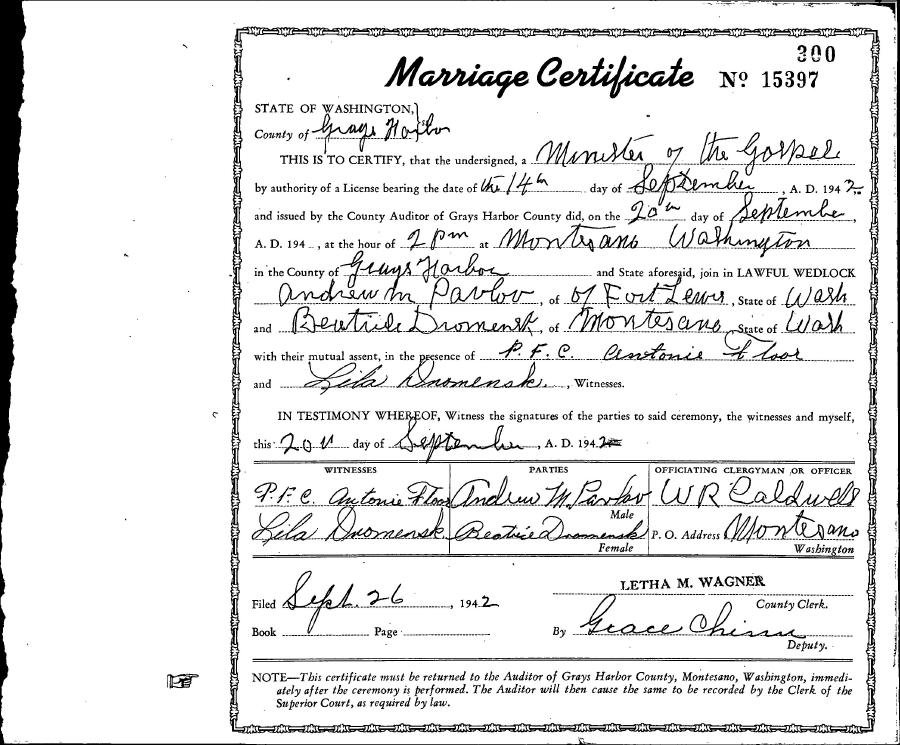 300
Marriage Certificate No 15397
STATE OF WASHINGTON,
County of Grays Harbor
THIS IS TO CERTIFY, that the undersigned, a Minister of the Gospel
by authority of a License bearing the date of the 14th day of September, A. D. 1942
and issued by the County Auditor of Grays Harbor County did, on the 20th day of September,
A. D. 194 , at the hour of 2 pm at Montesano Washington
in the County of Grays Harbor and State aforesaid, join in LAWFUL WEDLOCK
Andrew M Pavlov, of of Fort Lewis, State of Wash
and Beatrice Dromensk, of Montesano, State of Wash
with their mutual assent, in the presence of P.F.C. Antonie Floor
and Lila Dromensk, Witnesses.
IN TESTIMONY WHEREOF, Witness the signatures of the parties to said ceremony, the witnesses and myself,
this 20th day of September, A. D. 1942
WITNESSES PARTIES OFFICIATING CLERGYMAN OR OFFICER
P.F.C. Antonie Floor Andrew M. Pavlov W R Caldwell
Male
Lila Dromensk Beatrice Dromensk P. O. Address Montesano
Female Washington
LETHA M. WAGNER
Filed Sept. 26, 1942 County Clerk.
Book Page By Grace
Deputy.
NOTE—This certificate must be returned to the Auditor of Grays Harbor County, Montesano, Washington, immedi-
ately after the ceremony is performed. The Auditor will then cause the same to be recorded by the Clerk of the
Superior Court, as required by law.